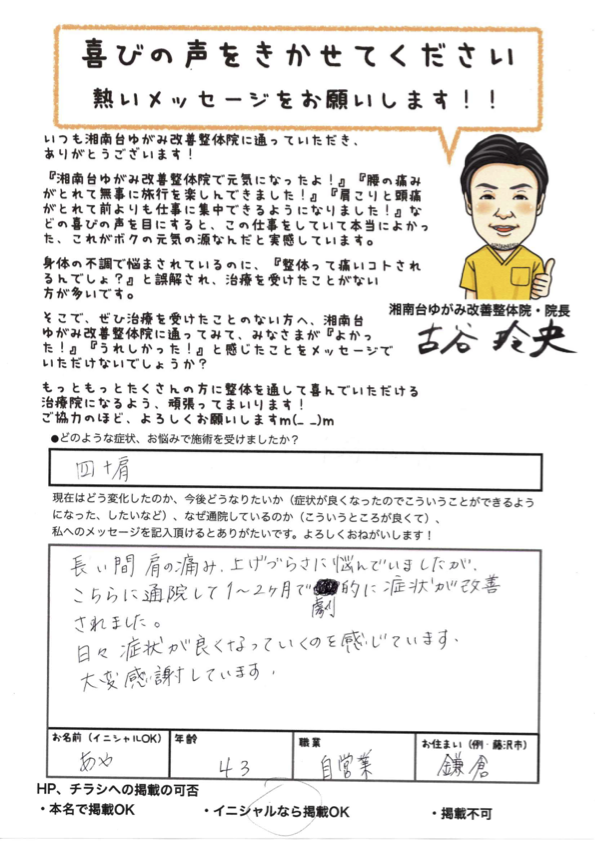 喜びの声をきかせてください
熱いメッセージをお願いします！！
いつも湘南台ゆがみ改善整体院に通っていただき、
ありがとうございます！
『湘南台ゆがみ改善整体院で元気になったよ！』『腰の痛み
がとれて無事に旅行を楽しんできました！』『肩こりと頭痛
がとれて前よりも仕事に集中できるようになりました！』な
どの喜びの声を目にすると、この仕事をしていて本当によかっ
た、これがボクの元気の源なんだと実感しています。
身体の不調で悩まされているのに、『整体って痛いコトされ
るんでしょ？』と誤解され、治療を受けたことがない
方が多いです。
そこで、ぜひ治療を受けたことのない方へ、湘南台
ゆがみ改善整体院に通ってみて、みなさまが『よかっ
た！』『うれしかった！』と感じたことをメッセージで
いただけないでしょうか？
もっともっとたくさんの方に整体を通して喜んでいただける
治療院になるよう、頑張ってまいります！
ご協力のほど、よろしくお願いしますm(_ _)m
湘南台ゆがみ改善整体院・院長
古谷 玲央
●どのような症状、お悩みで施術を受けましたか？
四十肩
現在はどう変化したのか、今後どうなりたいか（症状が良くなったのでこういうことができるよう
になった、したいなど）、なぜ通院しているのか（こういうところが良くて）、
私へのメッセージを記入頂けるとありがたいです。よろしくおねがいします！
長い間 肩の痛み、上げづらさに悩んでいましたが、
こちらに通院して1〜2ヶ月で劇的に症状が改善
されました。
日々 症状が良くなっていくのを感じています。
大変感謝しています。
お名前（イニシャルOK） 年齢 職業 お住まい（例・藤沢市）
あや 43 自営業 鎌倉
HP、チラシへの掲載の可否
・本名で掲載OK ・イニシャルなら掲載OK ・掲載不可